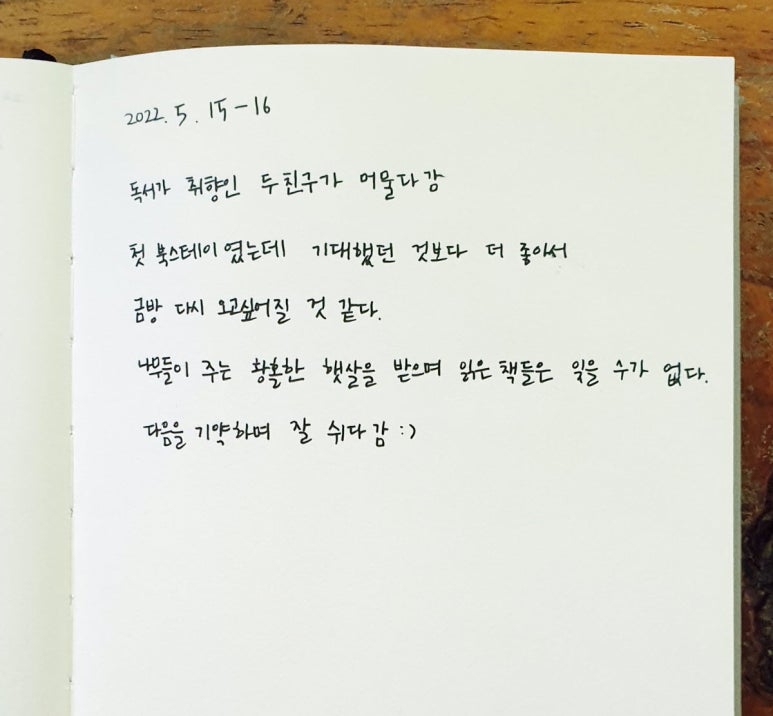 2022. 5. 15-16
독서가 취향인 두친구가 머물다감
첫 북스테이였는데 기대했던 것보다 더 좋아서
금방 다시 오고싶어질 것 같다.
나무들이 주는 황홀한 햇살을 받으며 읽은 책들은 잊을 수가 없다.
다음을 기약하며 잘 쉬다감 :)